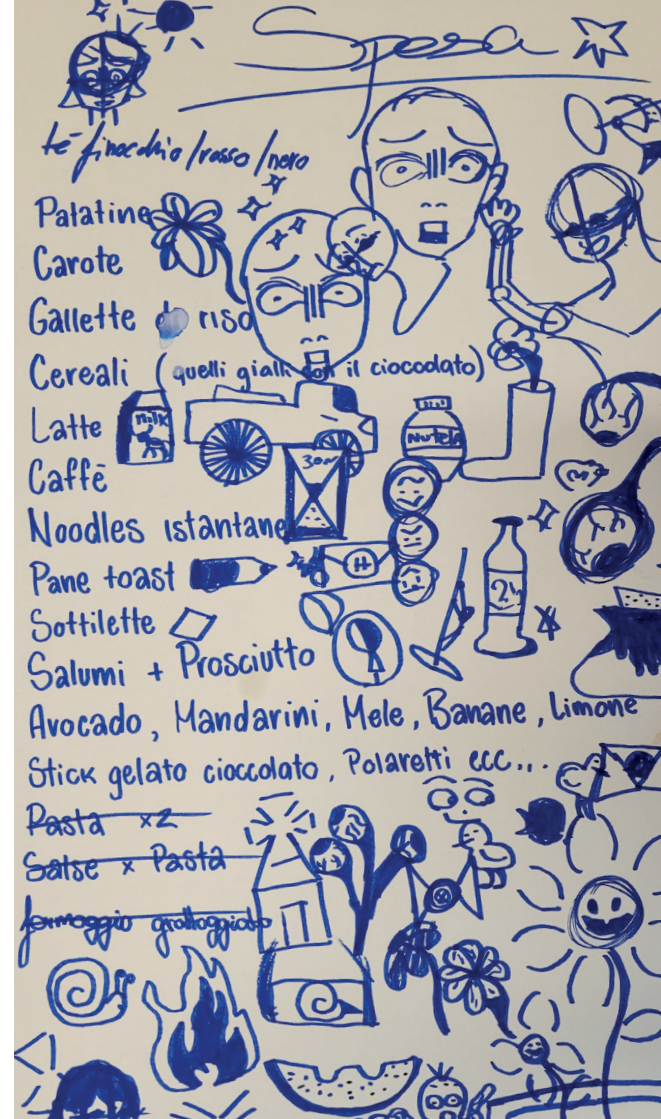 Spesa
tè finocchio/rosso/nero
Patatine
Carote
Gallette di riso
Cereali (quelli gialli con il cioccodato)
Latte
milk
Nutella
Caffè
30m
Noodles istantanei
Pane toast
H
Sottilette
Salumi + Prosciutto
Avocado, Mandarini, Mele, Banane, Limone
Stick gelato cioccolato, Polaretti ecc...
Pasta x2
Salse x Pasta
formaggio grattoggiato